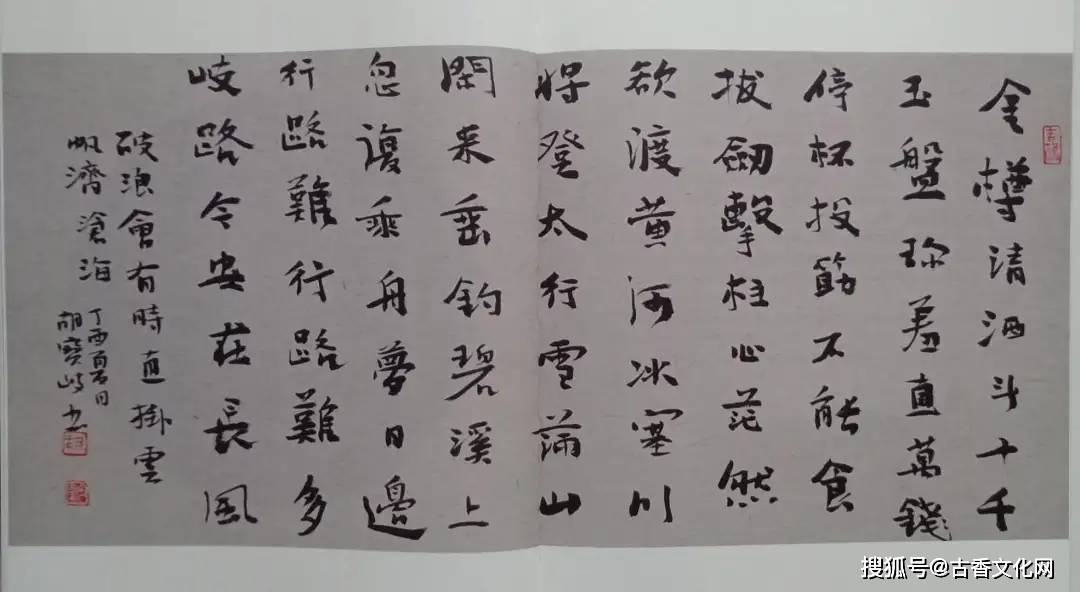 金樽清酒斗十千
玉盤珎羞直萬錢
停杯投筯不能食
拔劒擊柱心茫然
欲渡黄河冰塞川
将登太行雪滿山
閑来垂釣碧溪上
忽復乘舟夢日邊
行路難行路難多
岐路今安在長風
破浪會有時直掛雲
帆濟滄海
丁酉夏日
胡寶岐书
搜狐号@古香文化网